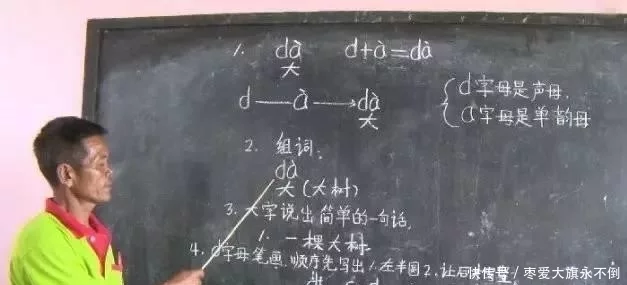 1. dà d+à=dà
大
d——à——→dà
大
d字母是声母.
a字母是单韵母
2. 组词.
dà
大(大树)
3. 大字说出简单的一句话.
1. 一棵大树.
4. d字母笔画.顺序先写出1.左半圆2.
快传号/枣爱大旗永不倒